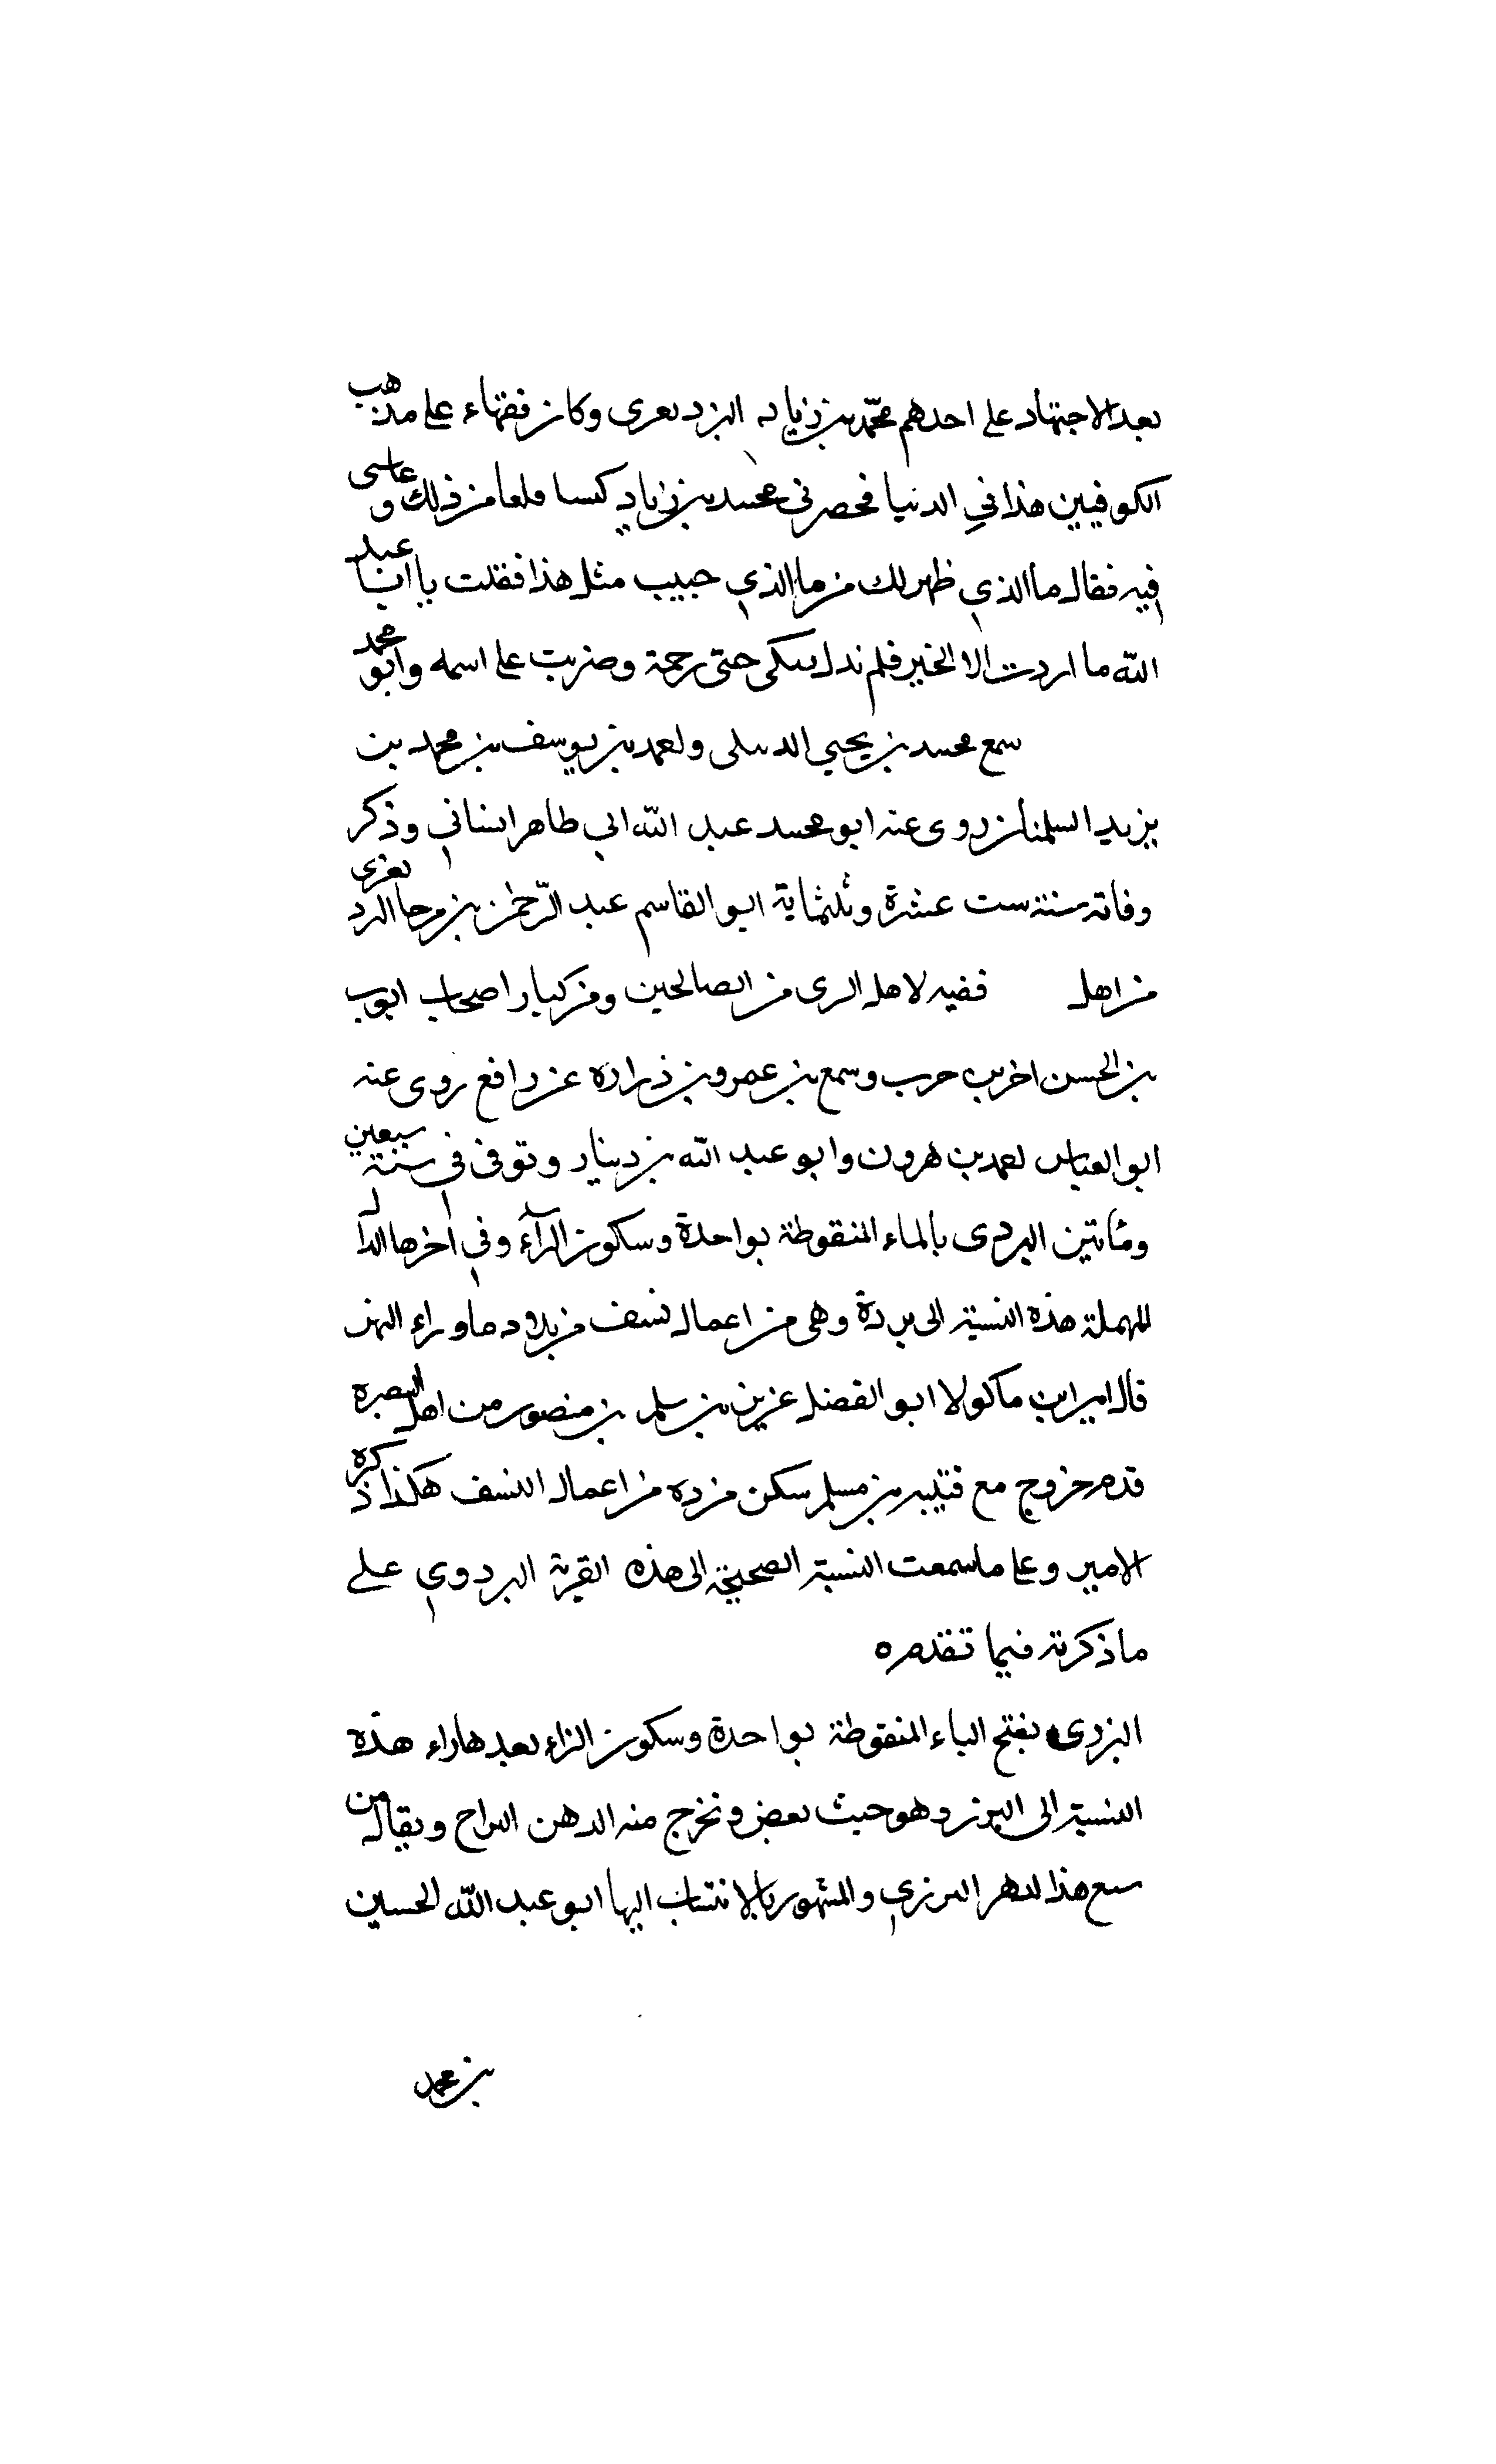 بعد الاجتهاد على احدهم محمّد بن زياد البزديغرى وكان فقهاء على مذهب
الكوفيين هذا في الدنيا فحصرنى محمد بن زياد كسا فلعا من ذلك و
فيه فقال ما الذي ظهر لك من ما الذي حبيب مثل هذا فقلت يا ابا عبد
الله ما اردت الا الخير فلم ندل يبكى حتى رحمة وضربت على اسمه وابو محمد
سمع محمد بن يحيي الدىىلى ولعمد بن يوسف بن محمد بن
يزيد السلمنان روى عنه ابو محمد عبد الله ابي طاهر اسناني وذكر
وفاته سنة ست عشرة وثلثماية ابو القاسم عبد الرّحمن بن مرحا الىرد يغزى
من اهل فقيه لاهل الرى من الصالحين ومن كبار اصحاب ايوب
بن الحسن اخرىب حرب وسمع بن عمرو بن ذرارة عن رافع روى عنه
ابو العباس لعمد بن هرون وابو عبد الله بن دينار وتوفى في سنة سبعين
ومأتين البردى بالباء المنقوطة بواحدة وسكون الرآء وفي اخرها الدال
المهملة هذه النسبة الى بردة وهى من اعمال نسف من بلاد ماوراء النهر
قال امير ابن ماكولا ابو الفضل عزيز بن سلم بن منصور من اهل البصرة
قدم خروج مع قتيبه بن مسلم سكن مزده من اعمال النسف هكذا ذكره
الامير وعا ما سمعت النسبة الصحيحة الى هذه القرية البردوي على
ما ذكرته فيما تقدم ه
البزرى بفتح الباء المنقوطة بواحدة وسكون الزاء بعدها راء هذه
النسبة الى البزر وهو حبث بعض ونخرج منه الدهن السراح ويقال من
سع هذا الدهر البزرى والمشهور بالانتساب اليها ابو عبد الله الحسين
بن محمد